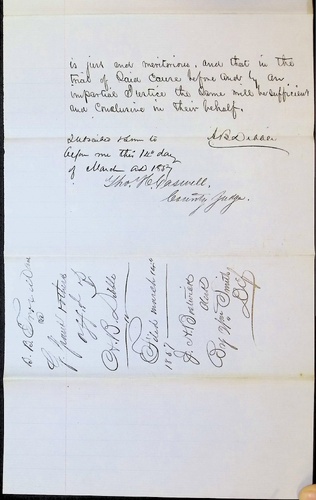 is just and meritorious, and that in the
trial of Said Cause before and by an
impartial Justice the same will be sufficient
and conclusive in their behalf.
A B Dibble
Subscribed & Sworn to
before me this 14th day
of March AD 1857
Thos. H. Caswell,
County Judge.
vs
others
Affdt of
A. B. Dibble
Filed March 14th
1857
J. H. Bostwick
Clerk
By Wm Smith
Dy